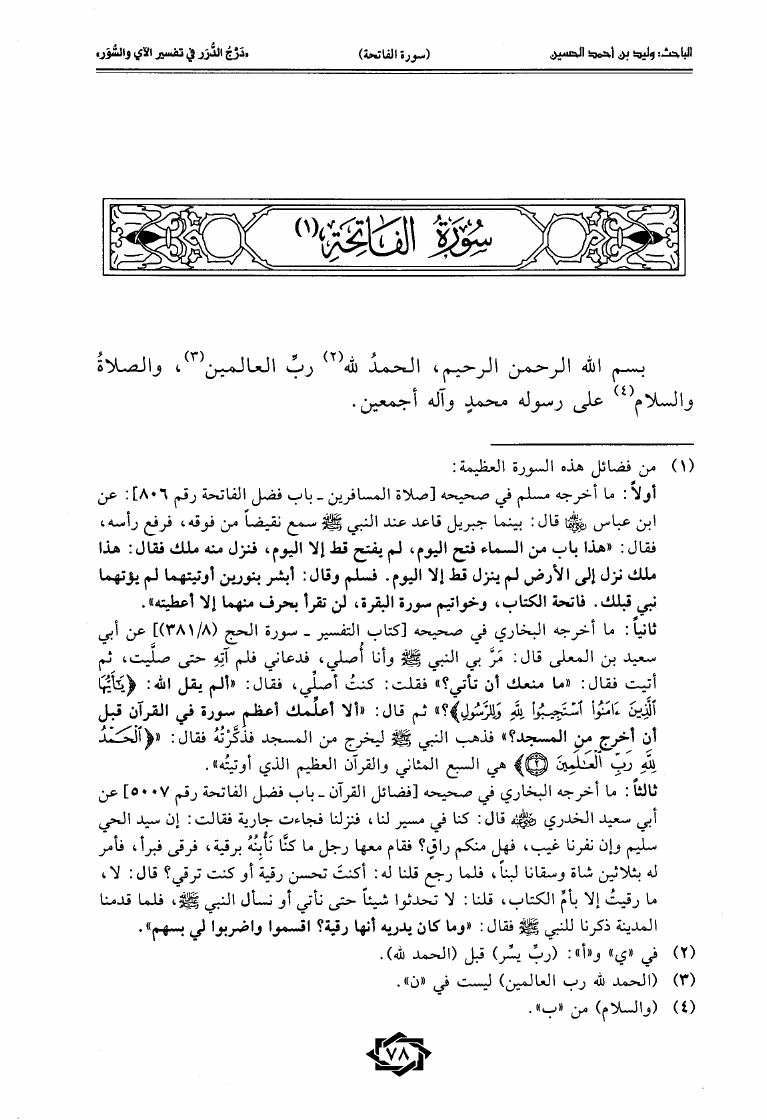 الباحث: وليد بن أحمد الحسين
(سورة الفاتحة)
«دَرْجُ الدُّرَر في تفسير الآي والسُّوَر»
سُورَةُ الفَاتِحَةِ(١)
بسم الله الرحمن الرحيم، الحمدُ لله(٢) ربِّ العالمين(٣)، والصلاةُ
والسلام(٤) على رسوله محمدٍ وآله أجمعين.
(١) من فضائل هذه السورة العظيمة:
أولاً: ما أخرجه مسلم في صحيحه [صلاة المسافرين - باب فضل الفاتحة رقم ٨٠٦]: عن
ابن عباس ﵄ قال: بينما جبريل قاعد عند النبي ﷺ سمع نقيضاً من فوقه، فرفع رأسه،
فقال: «هذا باب من السماء فتح اليوم، لم يفتح قط إلا اليوم، فنزل منه ملك فقال: هذا
ملك نزل إلى الأرض لم ينزل قط إلا اليوم. فسلم وقال: أبشر بنورين أوتيتهما لم يؤتهما
نبي قبلك. فاتحة الكتاب، وخواتيم سورة البقرة، لن تقرأ بحرف منهما إلا أعطيته».
ثانياً: ما أخرجه البخاري في صحيحه [كتاب التفسير - سورة الحج (٣٨١/٨)] عن أبي
سعيد بن المعلى قال: مَرَّ بي النبي ﷺ وأنا أُصلي، فدعاني فلم آتِهِ حتى صلَّيت، ثم
أتيت فقال: «ما منعك أن تأتي؟» فقلت: كنتُ أصلِّي، فقال: «ألم يقل الله: ﴿يَٰٓأَيُّهَا
ٱلَّذِينَ ءَامَنُوا۟ ٱسْتَجِيبُوا۟ لِلَّهِ وَلِلرَّسُولِ﴾؟» ثم قال: «ألا أعلِّمك أعظم سورة في القرآن قبل
أن أخرج من المسجد؟» فذهب النبي ﷺ ليخرج من المسجد فذكَّرْتُهُ فقال: «﴿ٱلْحَمْدُ
لِلَّهِ رَبِّ ٱلْعَٰلَمِينَ ۝٢﴾ هي السبع المثاني والقرآن العظيم الذي أوتيتُه».
ثالثاً: ما أخرجه البخاري في صحيحه [فضائل القرآن - باب فضل الفاتحة رقم ٥٠٠٧] عن
أبي سعيد الخدري ﵁ قال: كنا في مسير لنا، فنزلنا فجاءت جارية فقالت: إن سيد الحي
سليم وإن نفرنا غيب، فهل منكم راقٍ؟ فقام معها رجل ما كنَّا نَأْبِنُهُ برقية، فرقى فبرأ، فأمر
له بثلاثين شاة وسقانا لبناً، فلما رجع قلنا له: أكنتَ تحسن رقية أو كنت ترقي؟ قال: لا،
ما رقيتُ إلا بأمِّ الكتاب، قلنا: لا تحدثوا شيئاً حتى نأتي أو نسأل النبي ﷺ، فلما قدمنا
المدينة ذكرنا للنبي ﷺ فقال: «وما كان يدريه أنها رقية؟ اقسموا واضربوا لي بسهم».
(٢) في «ي» و«أ»: (ربِّ يسِّر) قبل (الحمد لله).
(٣) (الحمد لله رب العالمين) ليست في «ن».
(٤) (والسلام) من «ب».
٧٨